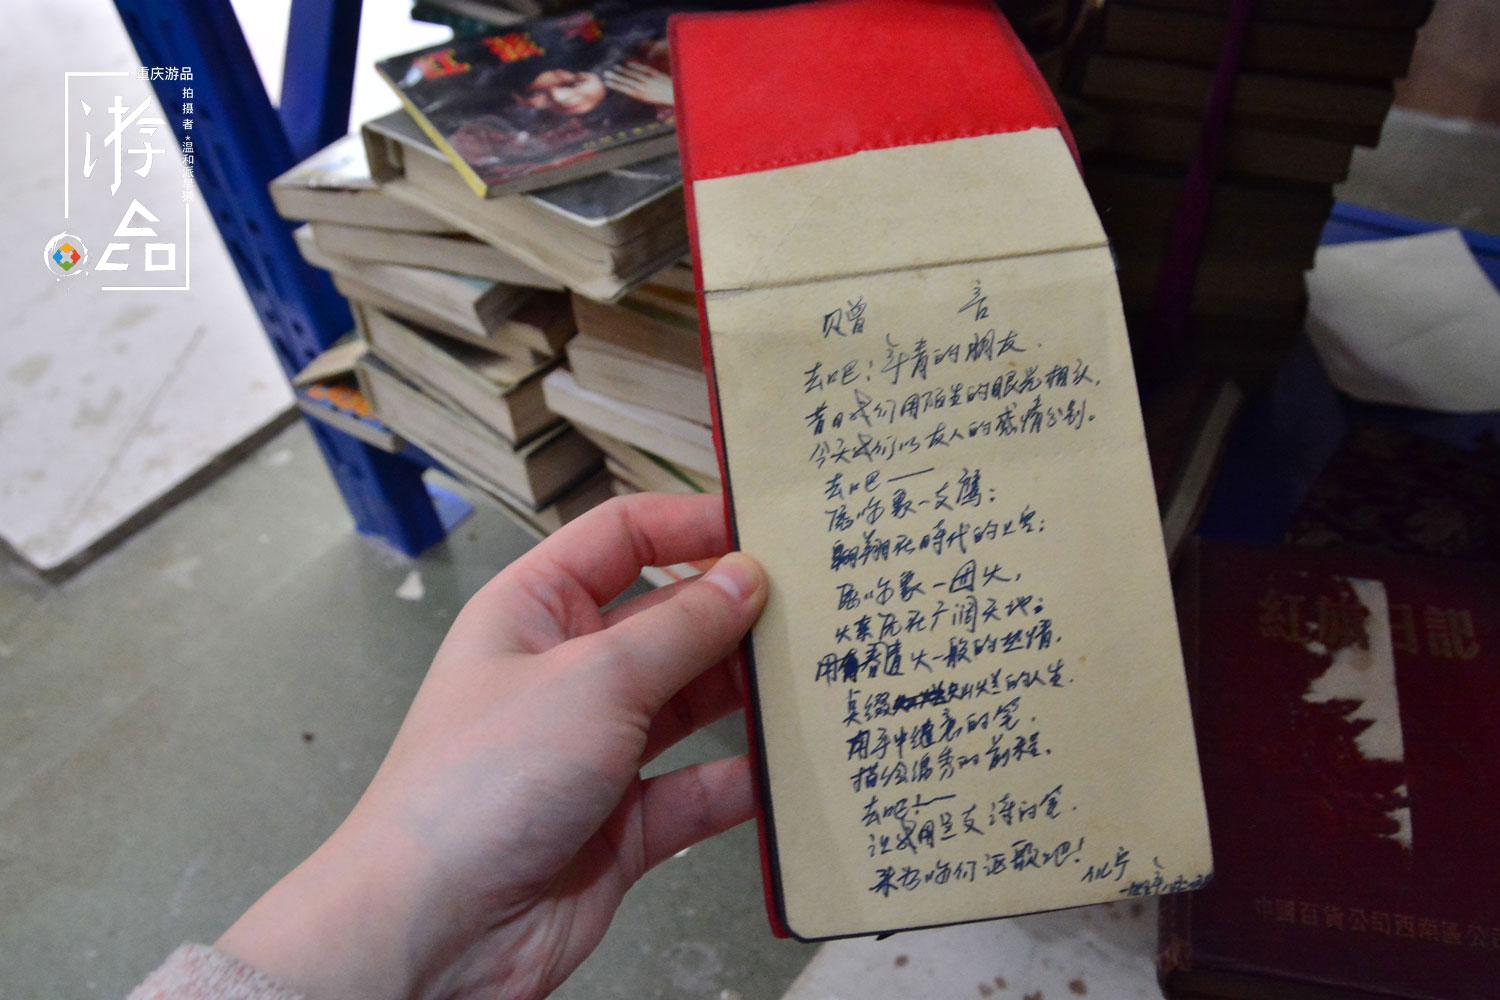 重庆游品
拍摄者*温和派
游品
红
赠 言
去吧！年青的朋友.
昔日我们用陌生的眼光相认,
今天我们以友人的感情分别。
去吧——
愿你象一支鹰：
翱翔在時代的上空；
愿你象一团火,
火亲 在广阔天地；
用青春 火一般的热情,
点缀 灿烂的人生.
用手中 的笔,
描绘锦秀的前程.
去吧！—
让我用这支诗的笔.
来为你们讴歌吧！
红旗日記
中國百貨公司西南區公司